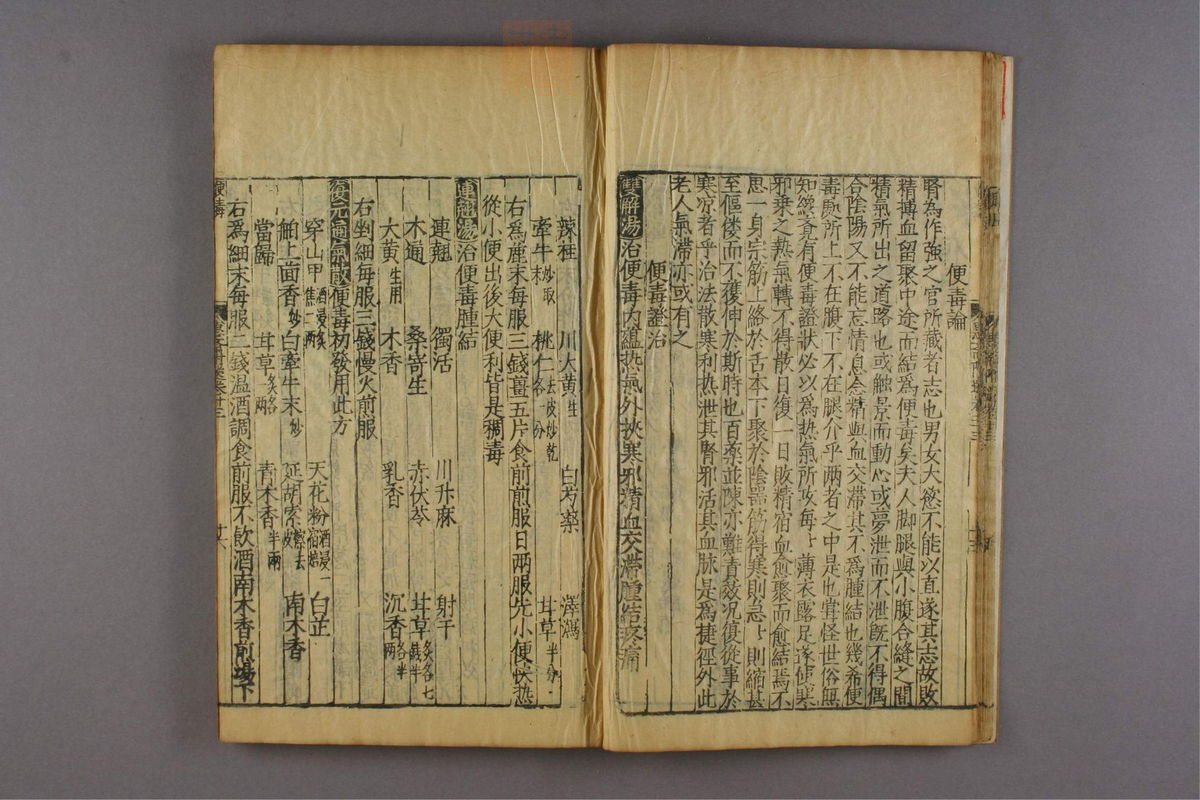 便毒論
腎為作強之官所藏者志也男女大慾不能以直遂其志故敗
精搏血留聚中途而結為便毒矣夫人脚腿與小腹合縫之間
精氣所出之道路也或觸景而動心或夢泄而不泄既不得偶
合陰陽又不能忘情息念精與血交滯其不為腫結也幾希便
毒䖏所上不在腹下不在腿介乎兩者之中是也甞怪世俗無
知纔有便毒證狀必以為热氣所攻每〻薄衣露足遂使寒
邪乗之热氣轉不得散日復一日敗精宿血愈聚而愈結焉不
思一身宗筋上絡於舌本下聚於陰噐筋得寒則急〻則縮甚
至傴僂而不獲伸於斯時也百薬並陳亦難責效况復從事於
寒凉者乎治法散寒利热泄其腎邪活其血脉是為捷徑外此
老人氣滞亦或有之
便毒證治
雙解湯治便毒内蘊热氣外挾寒邪精血交滯腫結疼痛
辣桂 川大黄生 白芍藥 澤瀉
牽牛炒取末 桃仁去皮炒乾各一分 甘草半分
右為麄末每服三錢薑五片食前煎服日两服先小便快热
從小便出後大便利皆是稠毒
連翹湯治便毒腫結
連翹 獨活 川升麻 射干
木通 桑寄生 赤伏苓 甘草炙各七錢半
大黄生用 木香 乳香 沉香各半两
右剉細每服三錢慢火煎服
復元通氣散便毒初發用此方
穿山甲酒浸炙焦二两 天花粉酒浸一宿焙 白芷
舶上茴香炒 白牽牛末炒 延胡索擦去皮 南木香
當歸 甘草炙各一两 青木香半两
右為細末每服二錢温酒調食前服不飲酒南木香煎湯下
便毒